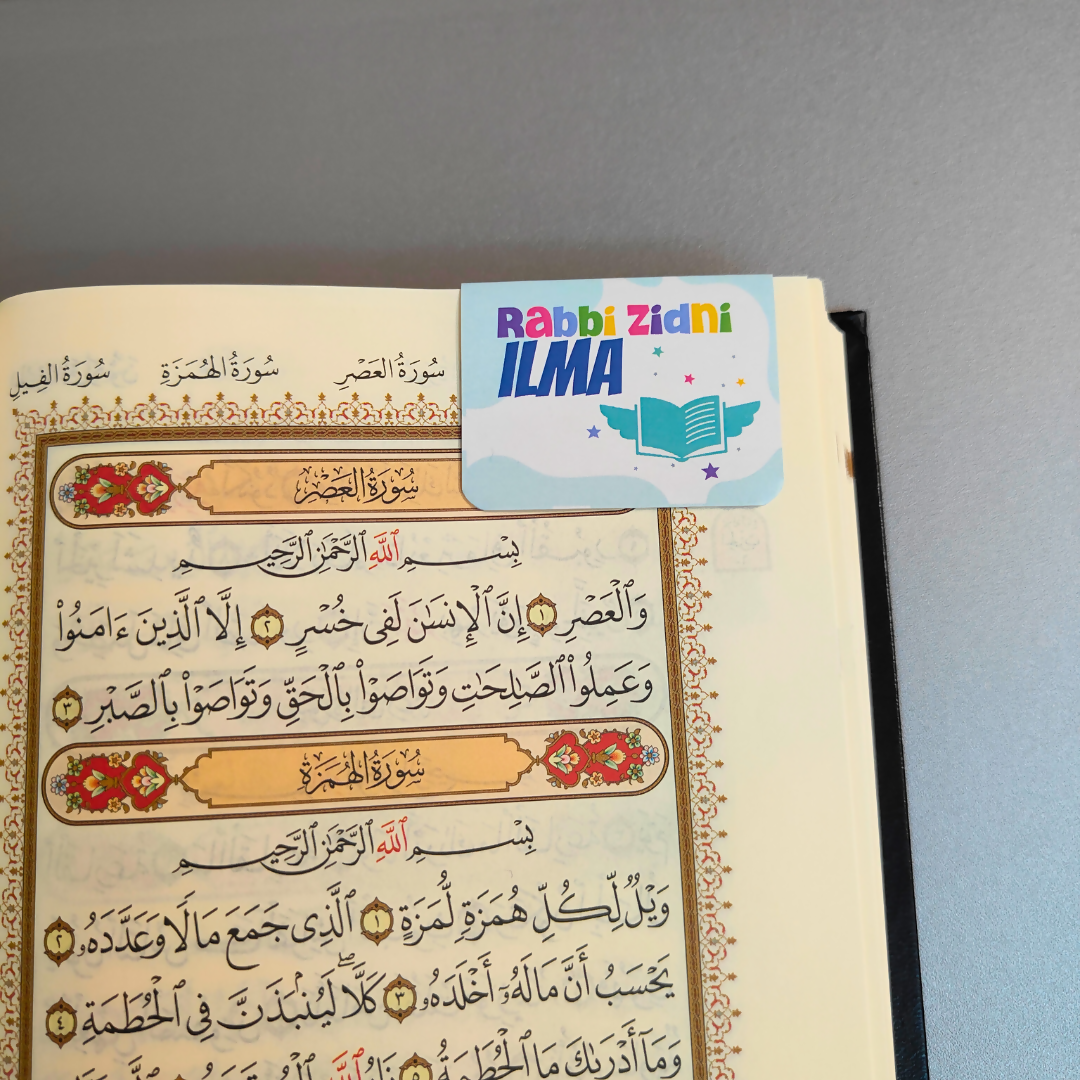 Rabbi Zidni
ILMA
سُورَةُ العَصْرِ سُورَةُ الهُمَزَةِ سُورَةُ الفِيلِ
سُورَةُ العَصْرِ
بِسْمِ ٱللَّهِ ٱلرَّحْمَٰنِ ٱلرَّحِيمِ
وَٱلْعَصْرِ ١ إِنَّ ٱلْإِنسَٰنَ لَفِى خُسْرٍ ٢ إِلَّا ٱلَّذِينَ ءَامَنُوا۟
وَعَمِلُوا۟ ٱلصَّٰلِحَٰتِ وَتَوَاصَوْا۟ بِٱلْحَقِّ وَتَوَاصَوْا۟ بِٱلصَّبْرِ ٣
سُورَةُ الهُمَزَةِ
بِسْمِ ٱللَّهِ ٱلرَّحْمَٰنِ ٱلرَّحِيمِ
وَيْلٌ لِّكُلِّ هُمَزَةٍ لُّمَزَةٍ ١ ٱلَّذِى جَمَعَ مَالًا وَعَدَّدَهُۥ ٢
يَحْسَبُ أَنَّ مَالَهُۥٓ أَخْلَدَهُۥ ٣ كَلَّا ۖ لَيُنۢبَذَنَّ فِى ٱلْحُطَمَةِ ٤
وَمَآ أَدْرَىٰكَ مَا ٱلْحُطَمَةُ ٥ نَارُ ٱللَّهِ